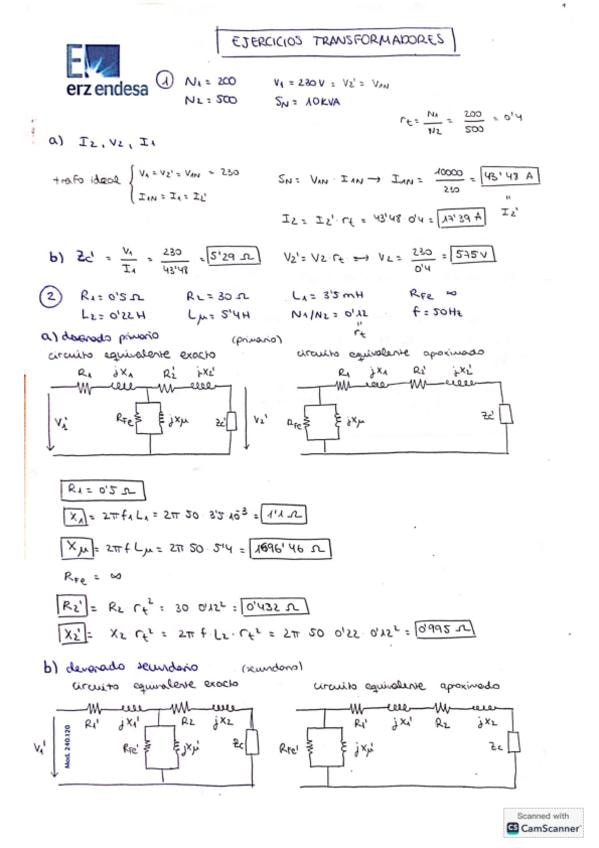 1
EJERCICIOS TRANSFORMADORES
E
erz endesa
1 N1 = 200 V1 = 230V = V2' = V1N
N2 = 500 SN = 10KVA
rt = N1/N2 = 200/500 = 0'4
a) I2, V2, I1
trafo ideal { V1 = V2' = V1N = 230
I1N = I1 = I2'
SN = V1N · I1N → I1N = 10000/230 = 43'48 A
" I2'
I2 = I2' · rt = 43'48 0'4 = 17'39 A
b) Zc' = V1/I1 = 230/43'48 = 5'29 Ω V2' = V2 rt ↔ V2 = 230/0'4 = 575V
2 R1 = 0'5 Ω R2 = 30 Ω L1 = 3'5 mH RFe ∞
L2 = 0'22 H Lμ = 5'4 H N1/N2 = 0'12 f = 50Hz
" rt
a) devanado primario (primario)
circuito equivalente exacto circuito equivalente aproximado
R1 jX1 R2' jX2' R1 jX1 R2' jX2'
V1' RFe jXμ Zc' V2' RFe jXμ Zc'
R1 = 0'5 Ω
X1 = 2πf1 L1 = 2π 50 · 3'5 10⁻³ = 1'1 Ω
Xμ = 2πf Lμ = 2π 50 · 5'4 = 1696'46 Ω
RFe = ∞
R2' = R2 rt² = 30 0'12² = 0'432 Ω
X2' = X2 rt² = 2π f L2 · rt² = 2π 50 0'22 0'12² = 0'995 Ω
b) devanado secundario (secundario)
circuito equivalente exacto circuito equivalente aproximado
R1' jX1' R2 jX2 R1' jX1' R2 jX2
V1' RFe' jXμ' Zc RFe' jXμ' Zc
Mod. 240.120
Scanned with
CS CamScanner